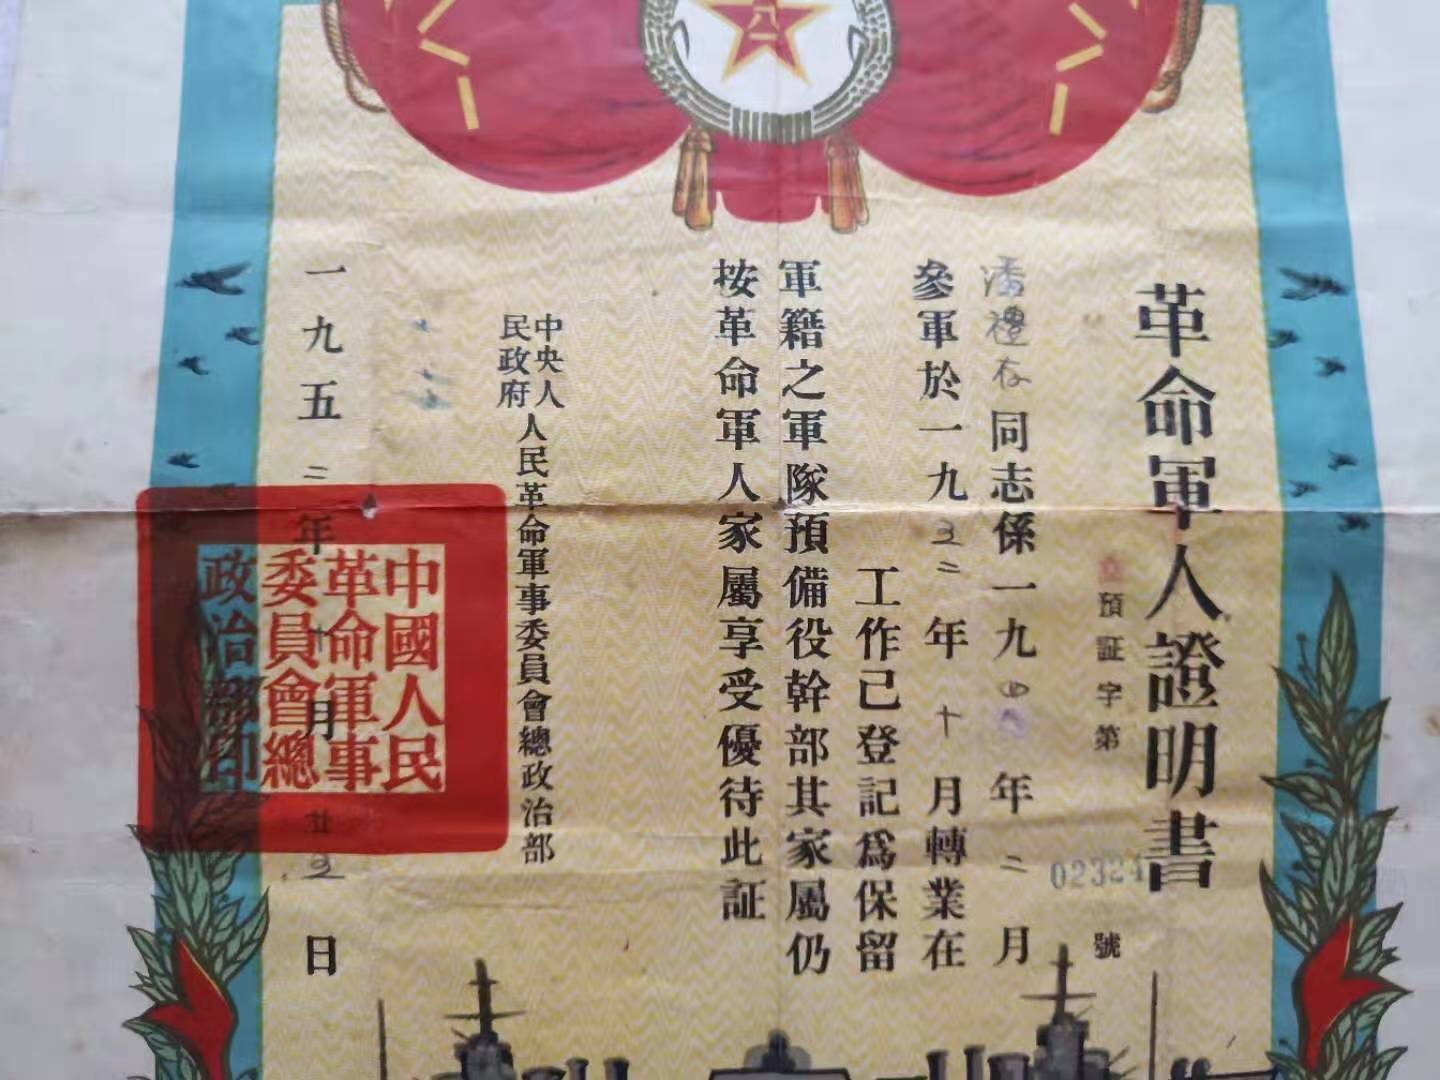 八一
革命軍人證明書
預証字第02324號
潘禮存同志係一九四年二月
參軍於一九五二年十月轉業在
工作已登記為保留
軍籍之軍隊預備役幹部其家屬仍
按革命軍人家屬享受優待此証
中央人民政府人民革命軍事委員會總政治部
一九五二年十月廿五日
中國人民
革命軍事
委員會總
政治部印